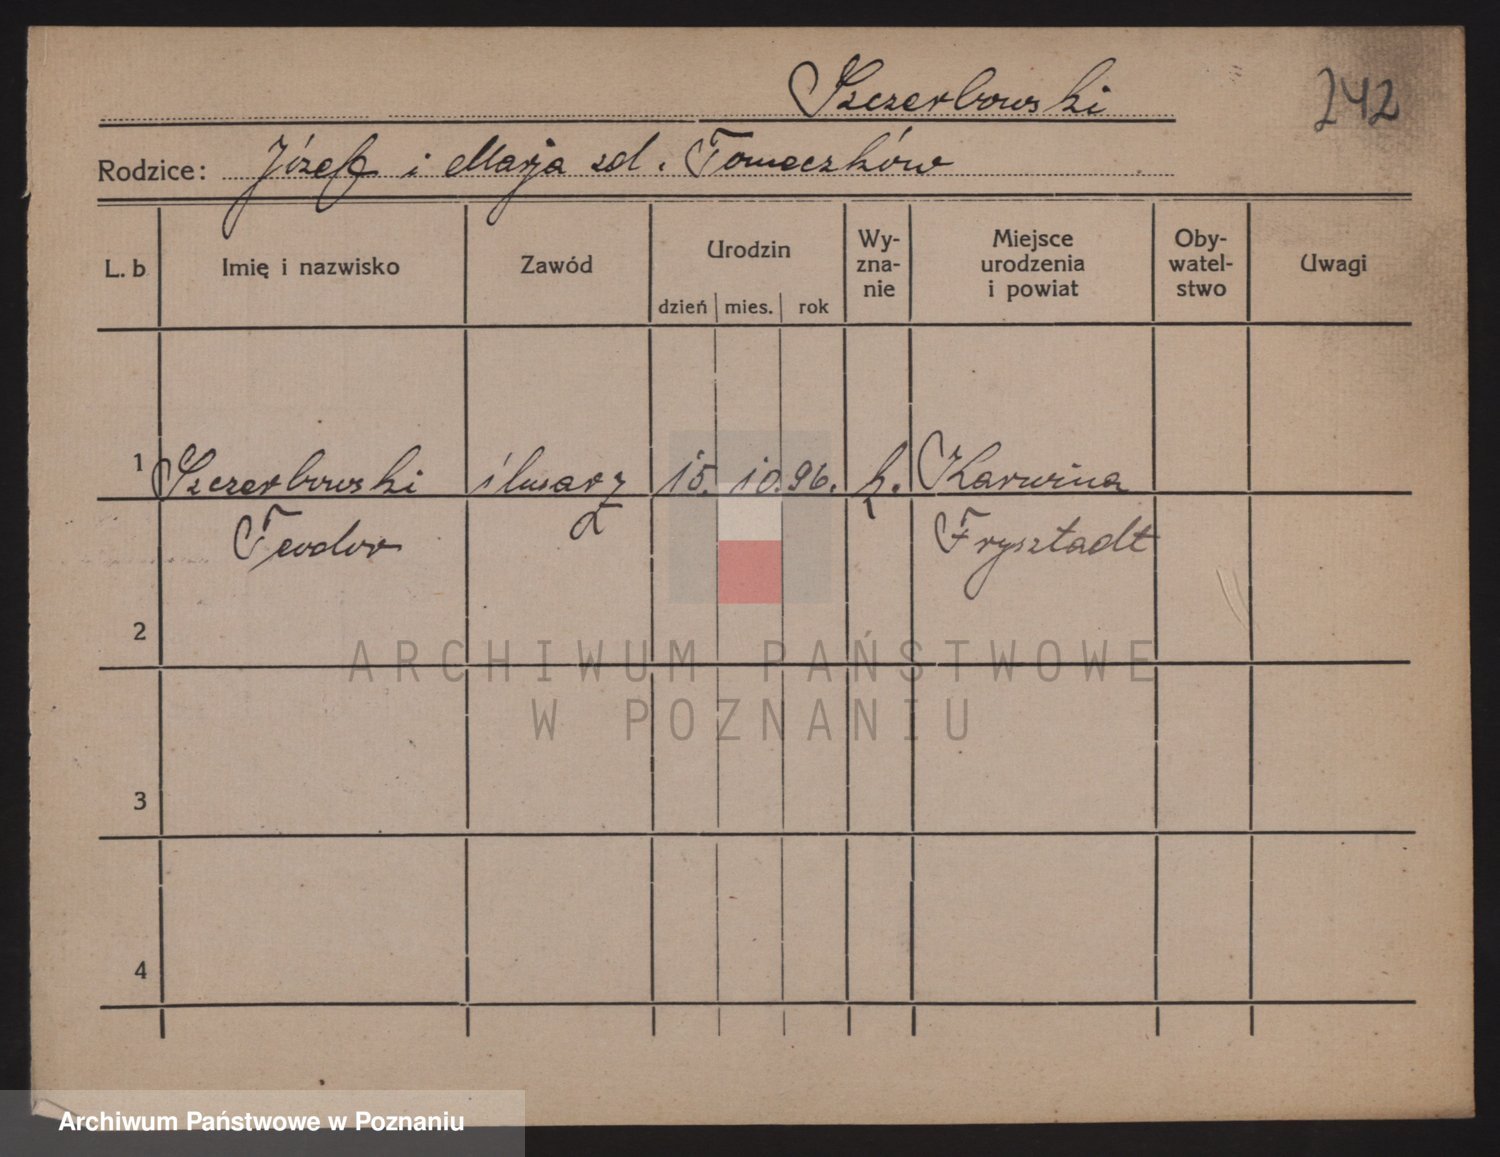 Szczerbowski
242
Rodzice: Józef i Marja zd. Tomeczków
L. b
Imię i nazwisko
Zawód
Urodzin
dzień mies. rok
Wy-
zna-
nie
Miejsce
urodzenia
i powiat
Oby-
watel-
stwo
Uwagi
1 Szczerbowski ślusarz 15. 10. 96. k. Karwina
Teodor Frysztadt
2
ARCHIWUM PAŃSTWOWE
W POZNANIU
3
4
Archiwum Państwowe w Poznaniu